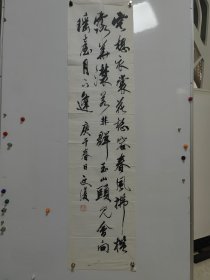 雲想衣裳花想容春風拂檻
露華濃若非群玉山頭見會向
瑤臺月下逢 庚午春日